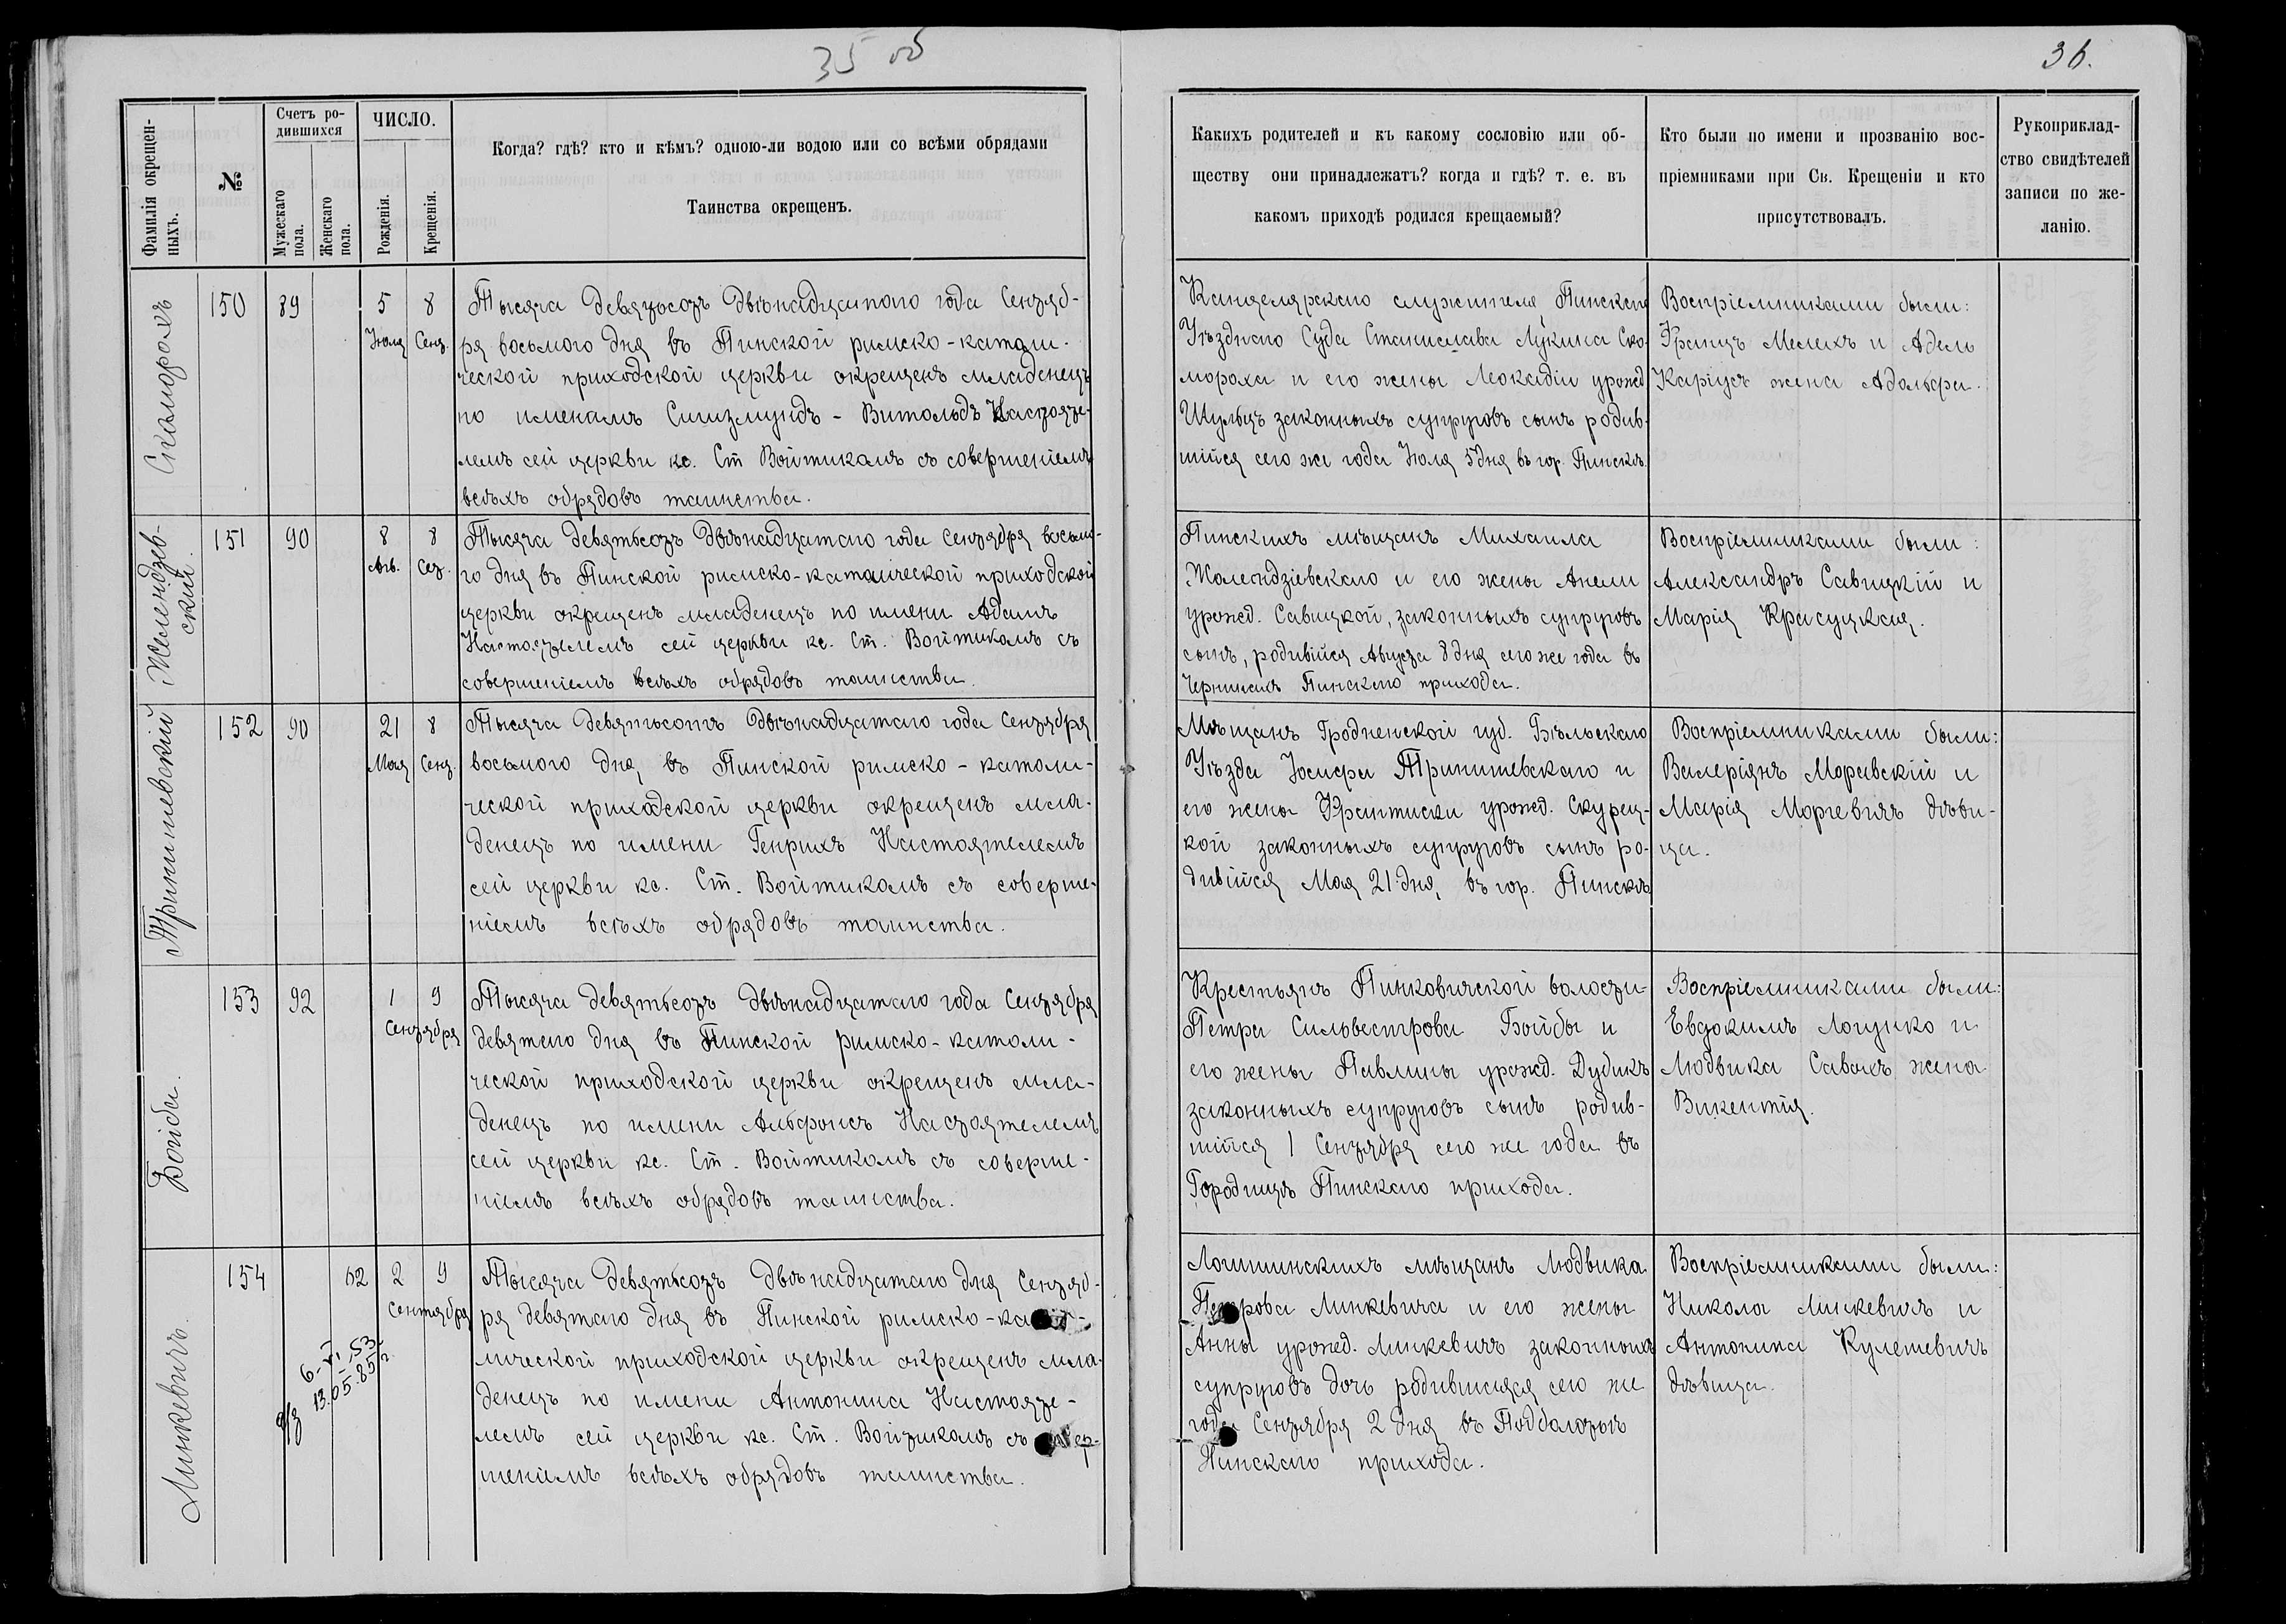 35 об
36.
Фамилія окрещен-
ныхъ.
№
Счетъ ро-
дившихся
Мужескаго
пола.
Женскаго
пола.
ЧИСЛО.
Рожденія.
Крещенія.
Когда? гдѣ? кто и кѣмъ? одною-ли водою или со всѣми обрядами
Таинства окрещенъ.
Какихъ родителей и къ какому сословію или об-
ществу они принадлежатъ? когда и гдѣ? т. е. въ
какомъ приходѣ родился крещаемый?
Кто были по имени и прозванію вос-
пріемниками при Св. Крещеніи и кто
присутствовалъ.
Рукоприклад-
ство свидѣтелей
записи по же-
ланію.
Скаморохъ
150
89
5
Іюля
8
Сент.
Тысяча девятьсотъ двѣнадцатого года Сентяб-
ря восьмого дня въ Пинской римско-католи-
ческой приходской церкви окрещенъ младенецъ
по именамъ Сигизмундъ - Витольдъ Настояте-
лемъ сей церкви кс. Ст Войтикамъ съ совершеніемъ
всѣхъ обрядовъ таинства.
Канцелярскаго служителя Пинскаго
Уѣзднаго Суда Станислава Лукина Ско-
мороха и его жены Леокадіи урожд
Шульцъ законныхъ супруговъ сынъ родив-
шійся сего же года Іюля 5 дня въ гор. Пинскѣ.
Воспріемниками были:
Францъ Мелехъ и Адель
Каріусъ жена Адольфа.
Желендзев-
скій
151
90
8
Авг.
8
Сен.
Тысяча девятьсотъ двѣнадцатаго года Сентября восьмо-
го дня въ Пинской римско-католической приходской
церкви окрещенъ младенецъ по имени Адамъ
Настоятелемъ сей церкви кс. Ст. Войтикамъ съ
совершеніемъ всѣхъ обрядовъ таинства.
Пинскихъ мѣщанъ Михаила
Жолендзіевскаго и его жены Анели
урожд. Савицкой, законныхъ супруговъ
сынъ, родивійся Августа 8 дня сего же года въ
Пинскаго прихода.
Воспріемниками были:
Александръ Савицкій и
Марія Красуцкая.
152
90
21
Мая
8
Сент.
Тысяча девятьсотъ двѣнадцатаго года Сентября
восьмого дня, въ Пинской римско-католи-
ческой приходской церкви окрещенъ мла-
денецъ по имени Генрихъ Настоятелемъ
сей церкви кс. Ст. Войтикамъ съ соверше-
ніемъ всѣхъ обрядовъ таинства.
Мѣщанъ Гродненской губ. Бѣльскаго
Уѣзда Іосифа и
его жены урожд. Скурец-
кой законныхъ супруговъ сынъ ро-
дивійся Мая 21 дня, въ гор. Пинскѣ
Воспріемниками были:
Валеріянъ Моравскій и
Марія Моргевичъ дѣви-
ца.
Бойба.
153
92
1
9
Сентября
Тысяча девятьсотъ двѣнадцатаго года Сентября
девятаго дня въ Пинской римско-католи-
ческой приходской церкви окрещенъ мла-
денецъ по имени Альфонсъ Настоятелемъ
сей церкви кс. Ст. Войтикамъ съ соверше-
ніемъ всѣхъ обрядовъ таинства.
Крестьянъ Пинковичской волости
Петра Сильвестрова Бойбы и
его жены Павлины урожд. Дубикъ
законныхъ супруговъ сынъ родив-
шійся 1 Сентября сего же года въ
Городищѣ Пинскаго прихода.
Воспріемниками были:
Евдокимъ Логунко и
Людвика жена
Викентія.
Минкевичъ.
154
62
2
9
Сентября
6-VI.53
13.05.85г
Тысяча девятьсотъ двѣнадцатаго дня Сентяб-
ря девятаго дня въ Пинской римско-
лической приходской церкви окрещенъ мла-
денецъ по имени Антонина Настояте-
лемъ сей церкви кс. Ст. Войтикамъ съ
шеніемъ всѣхъ обрядовъ таинства.
Логишинскихъ мѣщанъ Людвика
Петрова Минкевича и его жены
Анны урожд. Минкевичъ законныхъ
супруговъ дочь родившаяся сего же
года Сентября 2 дня въ
Пинскаго прихода.
Воспріемниками были:
Никола Минкевичъ и
Антонина Кулешевичъ
дѣвица.